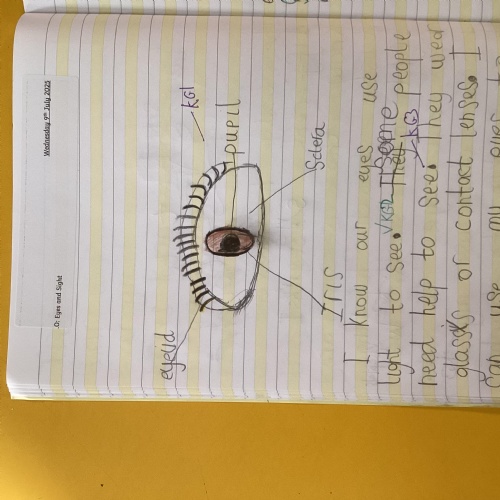 Wednesday 9th July 2025
LO: Eyes and Sight
KG1
pupil
Sclera
eyelid
Iris
I know our eyes use
light to see. √KG2 They Some people
need help to see. KG3 They wear
glasses or contact lenses. I
can use my eyes to